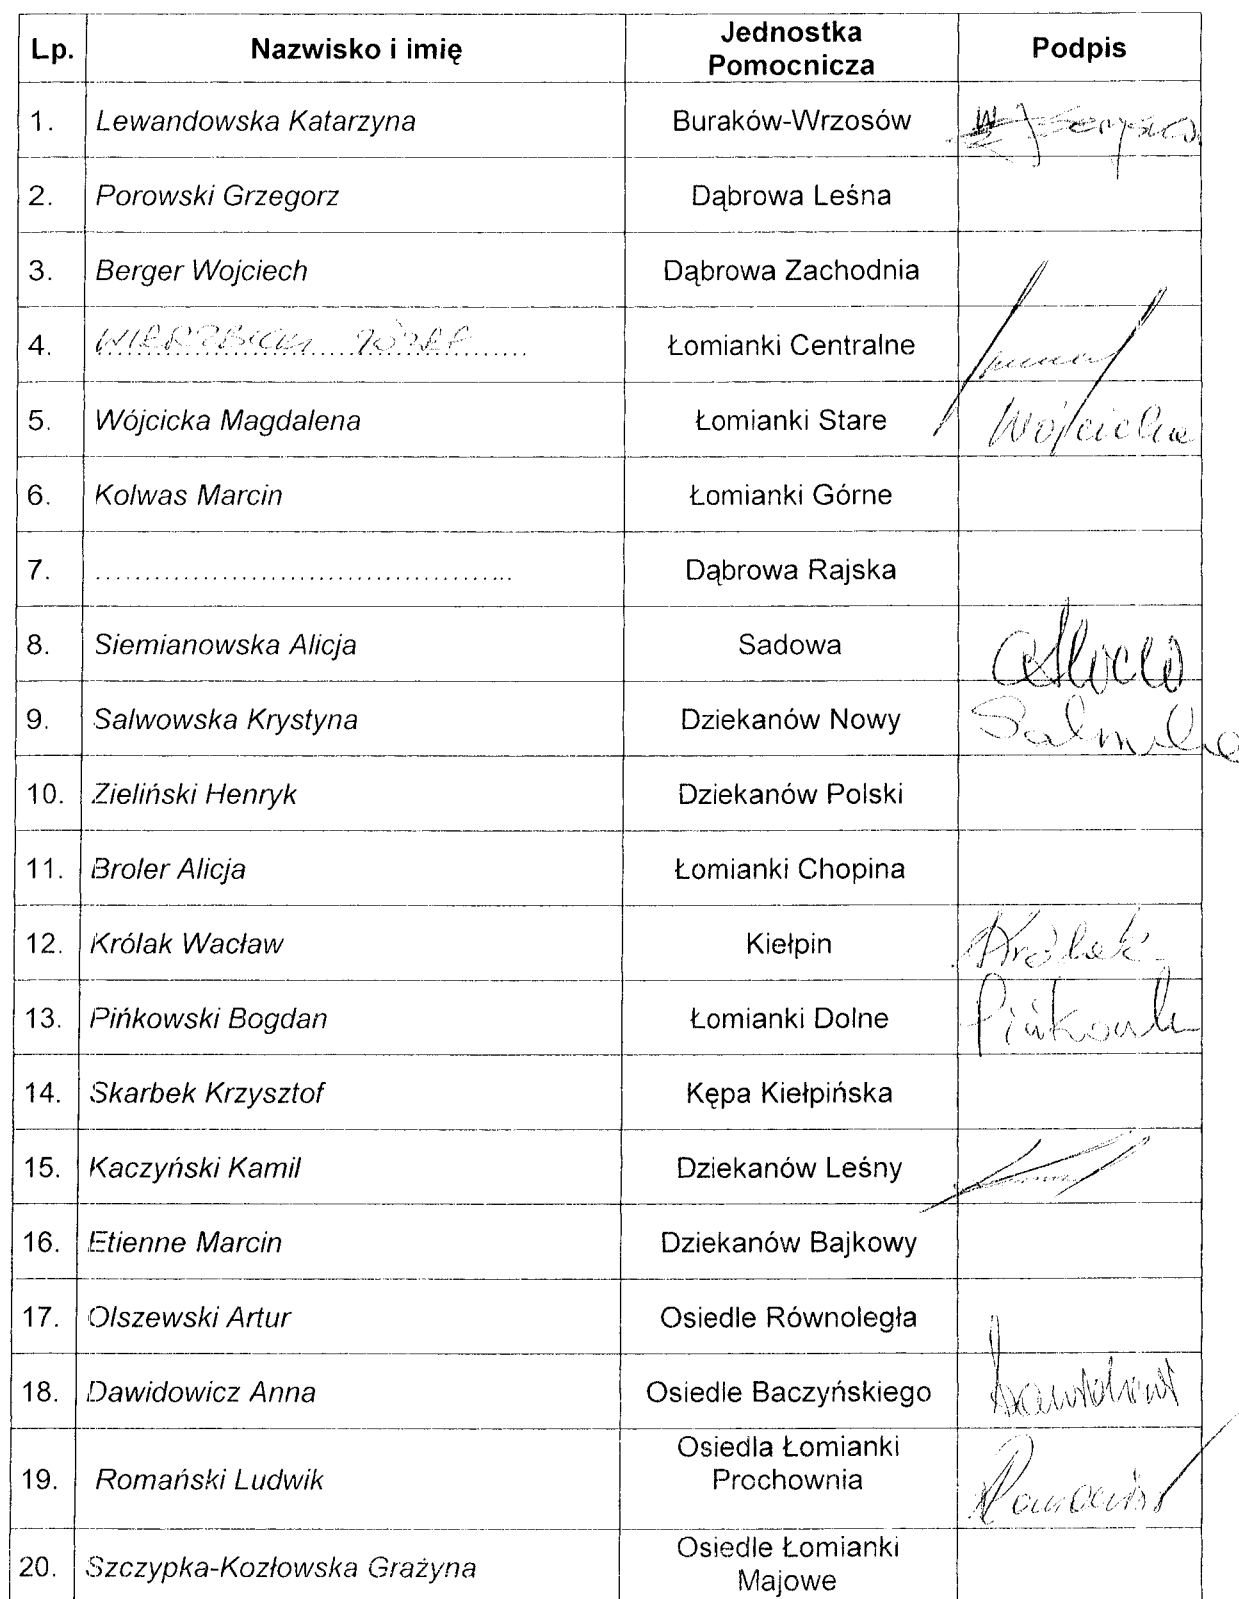 Lp. Nazwisko i imię Jednostka Pomocnicza Podpis
1. Lewandowska Katarzyna Buraków-Wrzosów
2. Porowski Grzegorz Dąbrowa Leśna
3. Berger Wojciech Dąbrowa Zachodnia
4. WIERZBICKI JÓZEF Łomianki Centralne
5. Wójcicka Magdalena Łomianki Stare Wójcicka
6. Kolwas Marcin Łomianki Górne
7. .......................................... Dąbrowa Rajska
8. Siemianowska Alicja Sadowa
9. Salwowska Krystyna Dziekanów Nowy
10. Zieliński Henryk Dziekanów Polski
11. Broler Alicja Łomianki Chopina
12. Królak Wacław Kiełpin Królak
13. Pińkowski Bogdan Łomianki Dolne
14. Skarbek Krzysztof Kępa Kiełpińska
15. Kaczyński Kamil Dziekanów Leśny
16. Etienne Marcin Dziekanów Bajkowy
17. Olszewski Artur Osiedle Równoległa
18. Dawidowicz Anna Osiedle Baczyńskiego
19. Romański Ludwik Osiedla Łomianki Prochownia
20. Szczypka-Kozłowska Grażyna Osiedle Łomianki Majowe